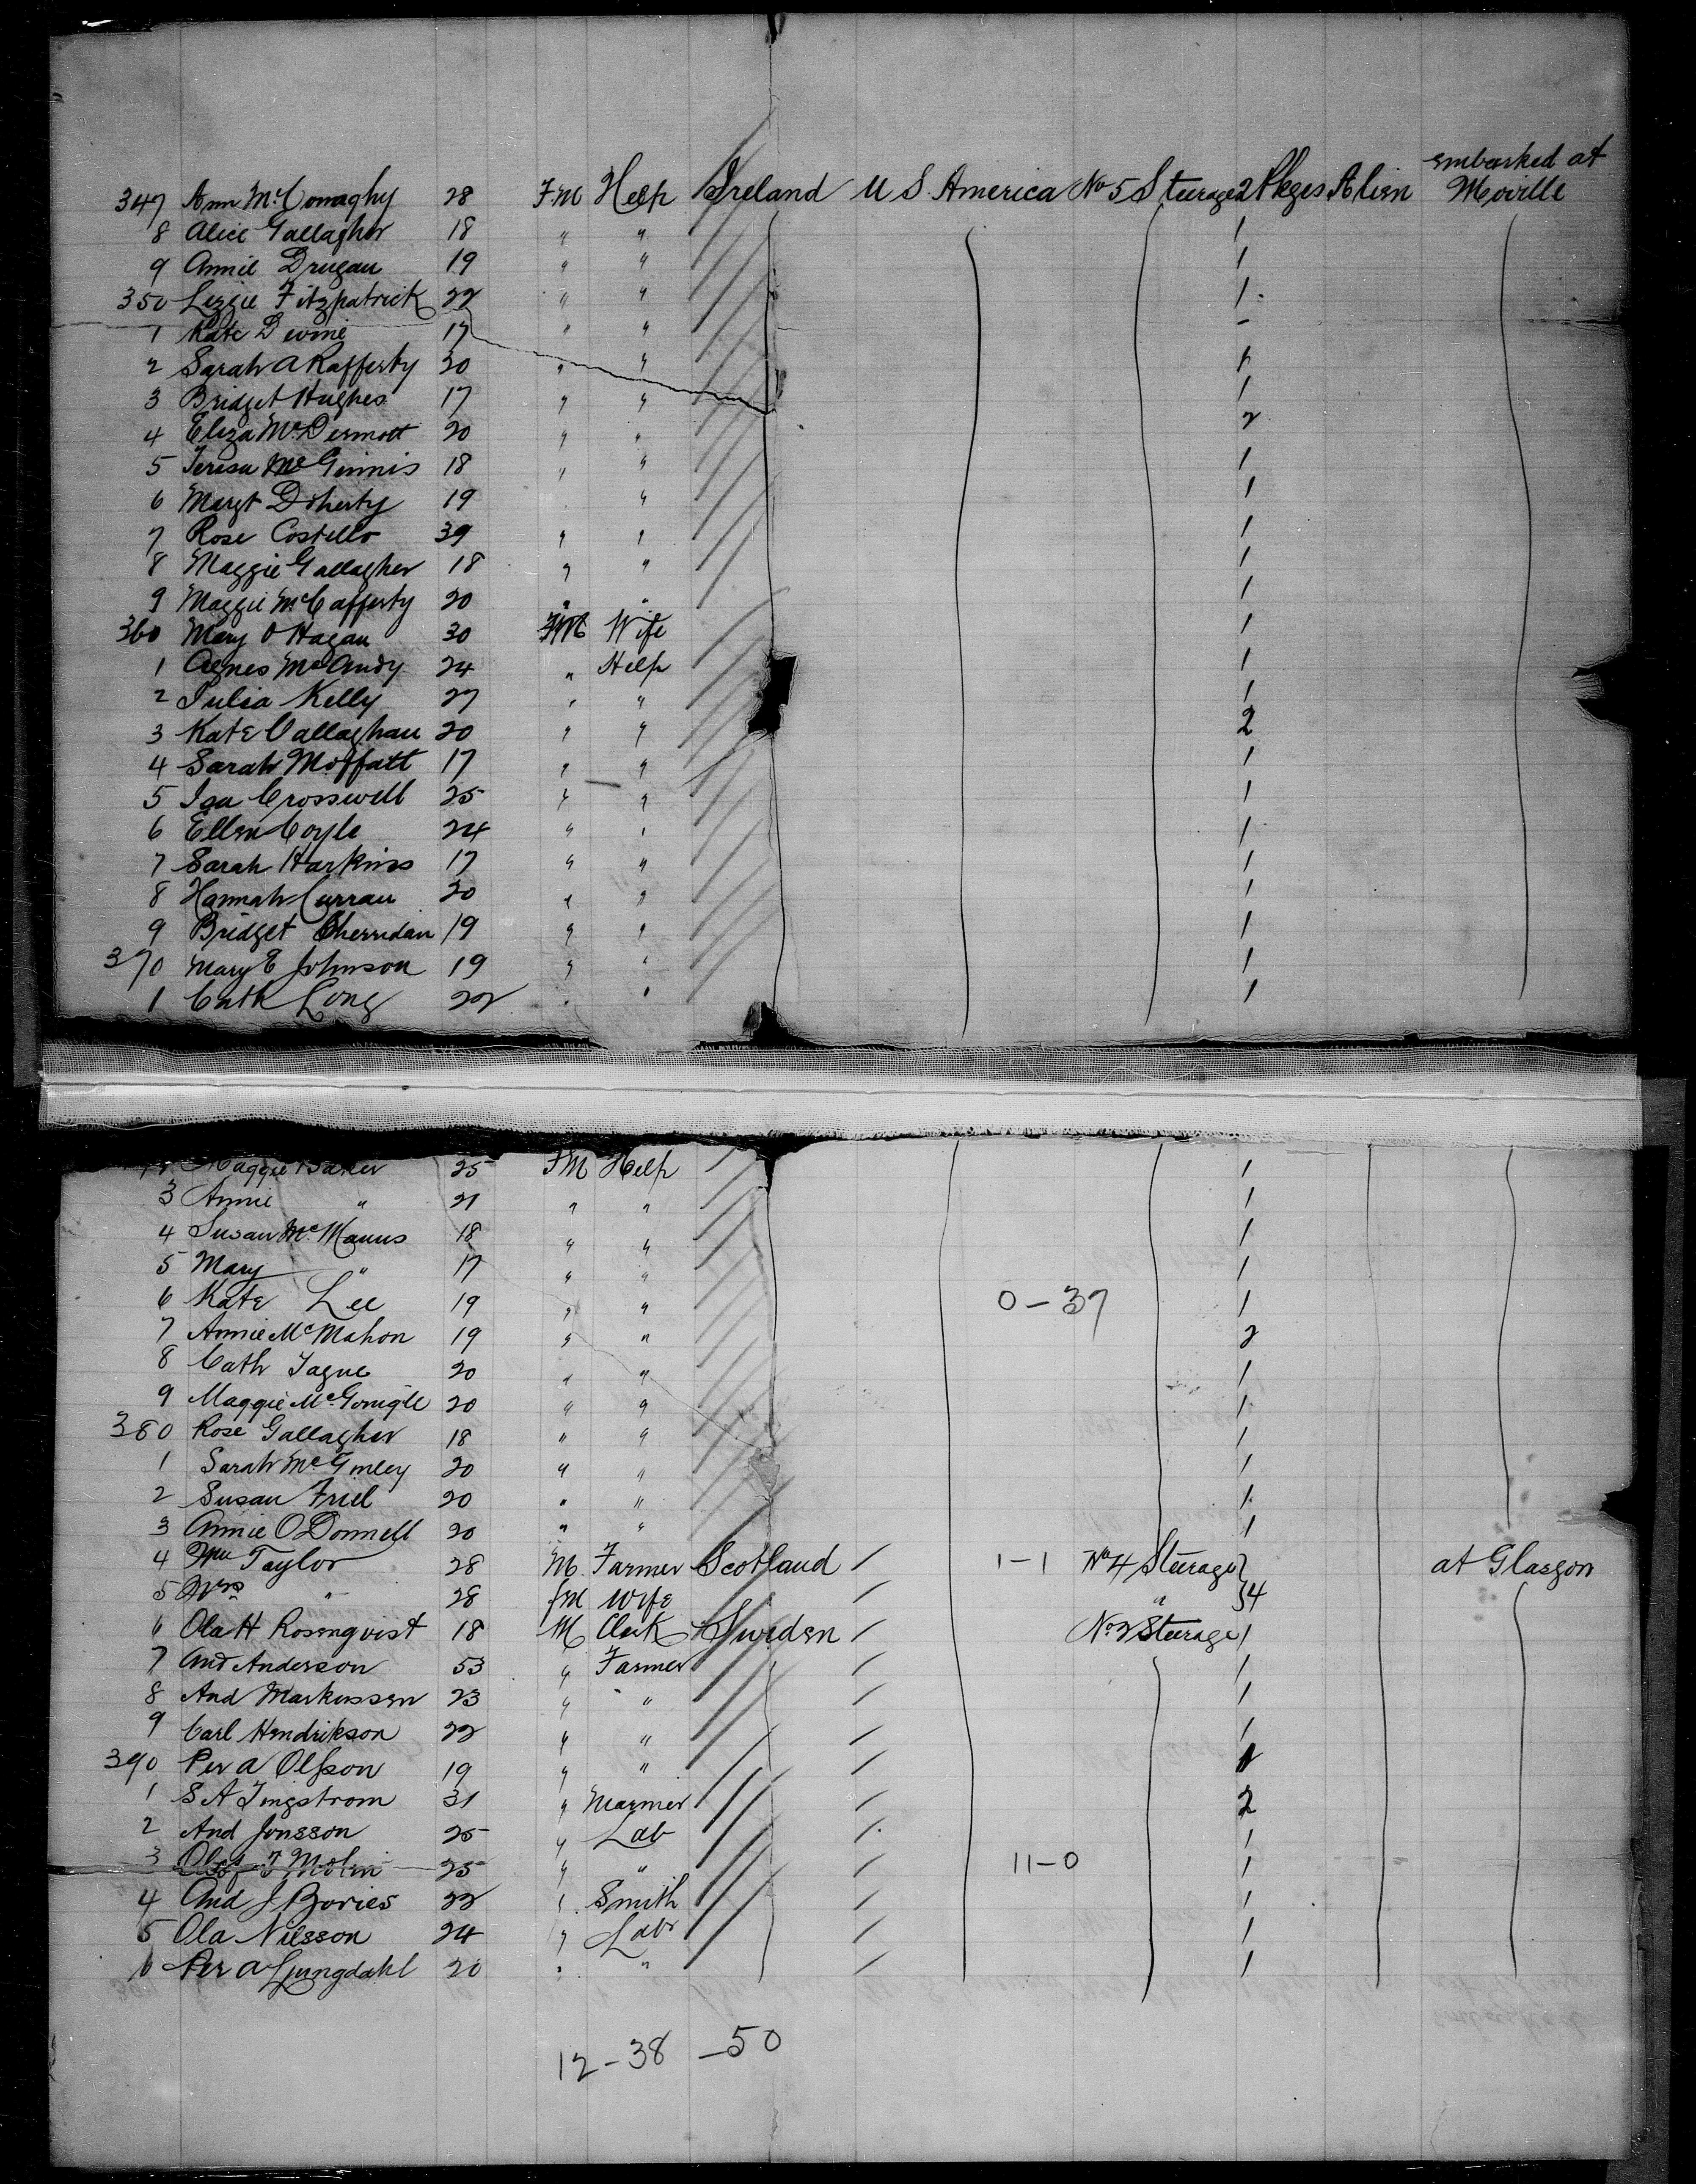 embarked at
347 Ann McConaghy 28 F.M Help Ireland U S. America No 5 Steerage 2 Pkges Alien Moville
8 Alice Gallagher 18 " " 1
9 Annie Drugan 19 " " 1
350 Lizzie Fitzpatrick 22 " " 1
1 Kate Devine 17 " " -
2 Sarah A Rafferty 20 " " 1
3 Bridget Hughes 17 " " 1
4 Eliza McDermott 20 " " 2
5 Teresa McGinnis 18 " " 1
6 Margt Doherty 19 " 1
7 Rose Costello 39 " " 1
8 Maggie Gallagher 18 " " 1
9 Maggie McCafferty 20 " " 1
360 Mary O Hagan 30 FM Wife 1
1 Agnes McAndy 24 " Help 1
2 Julia Kelly 27 " " 1
3 Kate Callaghan 20 " " 2
4 Sarah Moffatt 17 " " 1
5 Isa Crosswell 25 " " 1
6 Ellen Coyle 24 " " 1
7 Sarah Harkins 17 " " 1
8 Hannah Curran 20 " " 1
9 Bridget Sherridan 19 " " 1
370 Mary E Johnson 19 " " 1
1 Cath Long 22 " " 1
Maggie Baker 25 FM Help 1
3 Annie " 21 " " 1
4 Susan McManus 18 " " 1
5 Mary " 17 " " 1
6 Kate Lee 19 " " 0-37 1
7 Annie McMahon 19 " " 2
8 Cath Tague 20 " " 1
9 Maggie McGonigle 20 " " 1
380 Rose Gallagher 18 " " 1
1 Sarah McGinley 20 " " 1
2 Susan Friel 20 " " 1
3 Annie O Donnell 20 " " 1
4 Wm Taylor 28 M Farmer Scotland / 1-1 No 4 Steerage } at Glasgow
5 Mrs " 28 fM Wife / " } 4
6 Ola H Rosenqvist 18 M Clerk Sweden / No 2 Steerage 1
7 And Anderson 53 " Farmer / 1
8 And Markussen 23 " " / 1
9 Carl Hendrikson 22 " " / 1
390 Per A Olsson 19 " " / 1
1 S A Tingstrom 31 " Marmier / 2
2 And Jonsson 25 " Lab / 1
3 Olof T Molin 25 " " / 11-0 1
4 And J Bories 22 " Smith / 1
5 Ola Nilsson 24 " Labr / 1
6 Per A Ljungdahl 20 " " / 1
12-38-50